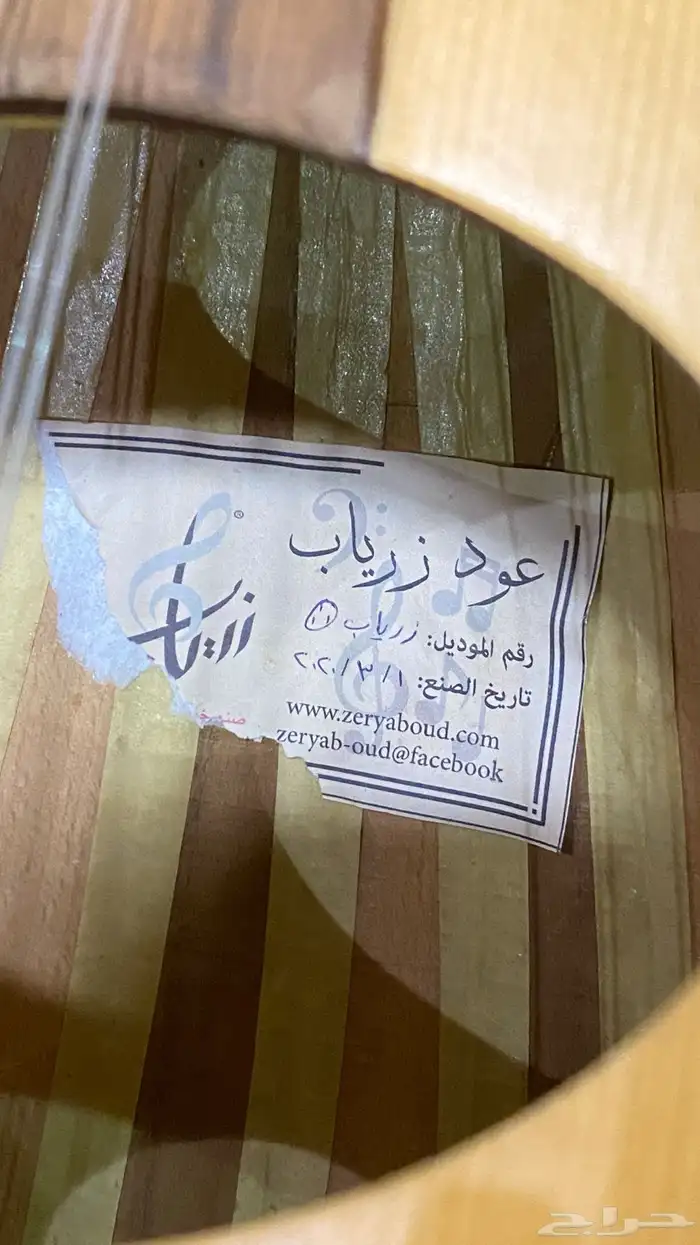 عود زرياب
رقم الموديل: زرياب ١١
تاريخ الصنع: ٢٠٢٠/٣/١
www.zeryaboud.com
zeryab-oud@facebook
زرياب
®
صنع
حراج